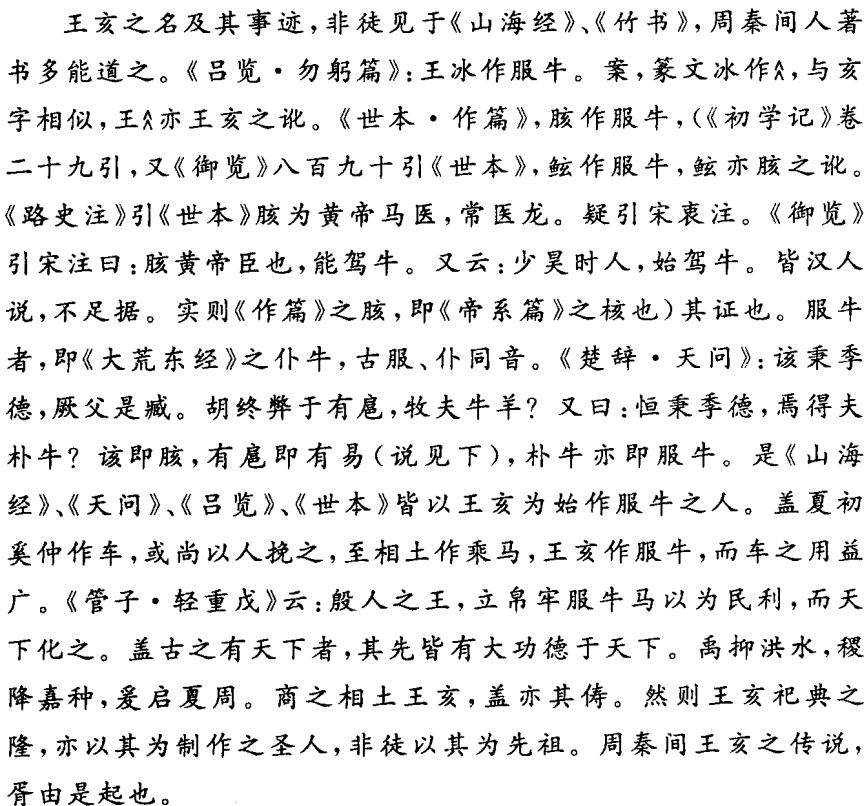 王亥之名及其事迹，非徒见于《山海经》、《竹书》，周秦间人著
书多能道之。《吕览·勿躬篇》：王冰作服牛。案，篆文冰作仌，与亥
字相似，王仌亦王亥之讹。《世本·作篇》，胲作服牛，（《初学记》卷
二十九引，又《御览》八百九十引《世本》，鲧作服牛，鲧亦胲之讹。
《路史注》引《世本》胲为黄帝马医，常医龙。疑引宋衷注。《御览》
引宋注曰：胲黄帝臣也，能驾牛。又云：少昊时人，始驾牛。皆汉人
说，不足据。实则《作篇》之胲，即《帝系篇》之核也）其证也。服牛
者，即《大荒东经》之仆牛，古服、仆同音。《楚辞·天问》：该秉季
德，厥父是臧。胡终弊于有扈，牧夫牛羊？又曰：恒秉季德，焉得夫
朴牛？该即胲，有扈即有易（说见下），朴牛亦即服牛。是《山海
经》、《天问》、《吕览》、《世本》皆以王亥为始作服牛之人。盖夏初
奚仲作车，或尚以人挽之，至相土作乘马，王亥作服牛，而车之用益
广。《管子·轻重戊》云：殷人之王，立帛牢服牛马以为民利，而天
下化之。盖古之有天下者，其先皆有大功德于天下。禹抑洪水，稷
降嘉种，爰启夏周。商之相土王亥，盖亦其俦。然则王亥祀典之
隆，亦以其为制作之圣人，非徒以其为先祖。周秦间王亥之传说，
胥由是起也。